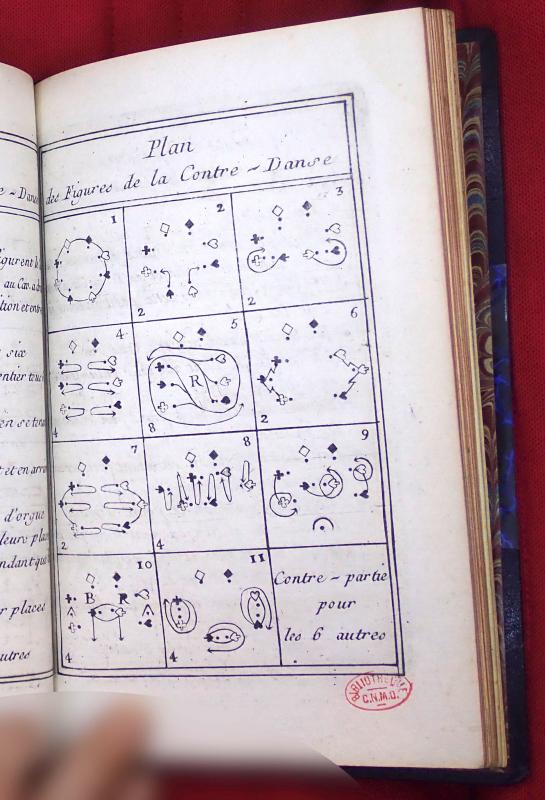 Plan
des Figures de la Contre - Danse
1
2
3
2
2
4
5
6
4
R
8
2
7
8
9
2
4
10
11
B R
4
4
Contre - partie
pour
les 6 autres
e - Dans
figurent le
au Cav. a dr
tion et entr
six
entier tour
en se tena
t et en arr
d'orgue
leurs plac
ndant que
r places
utres
BIBLIOTHEQUE
C.N.M.D.